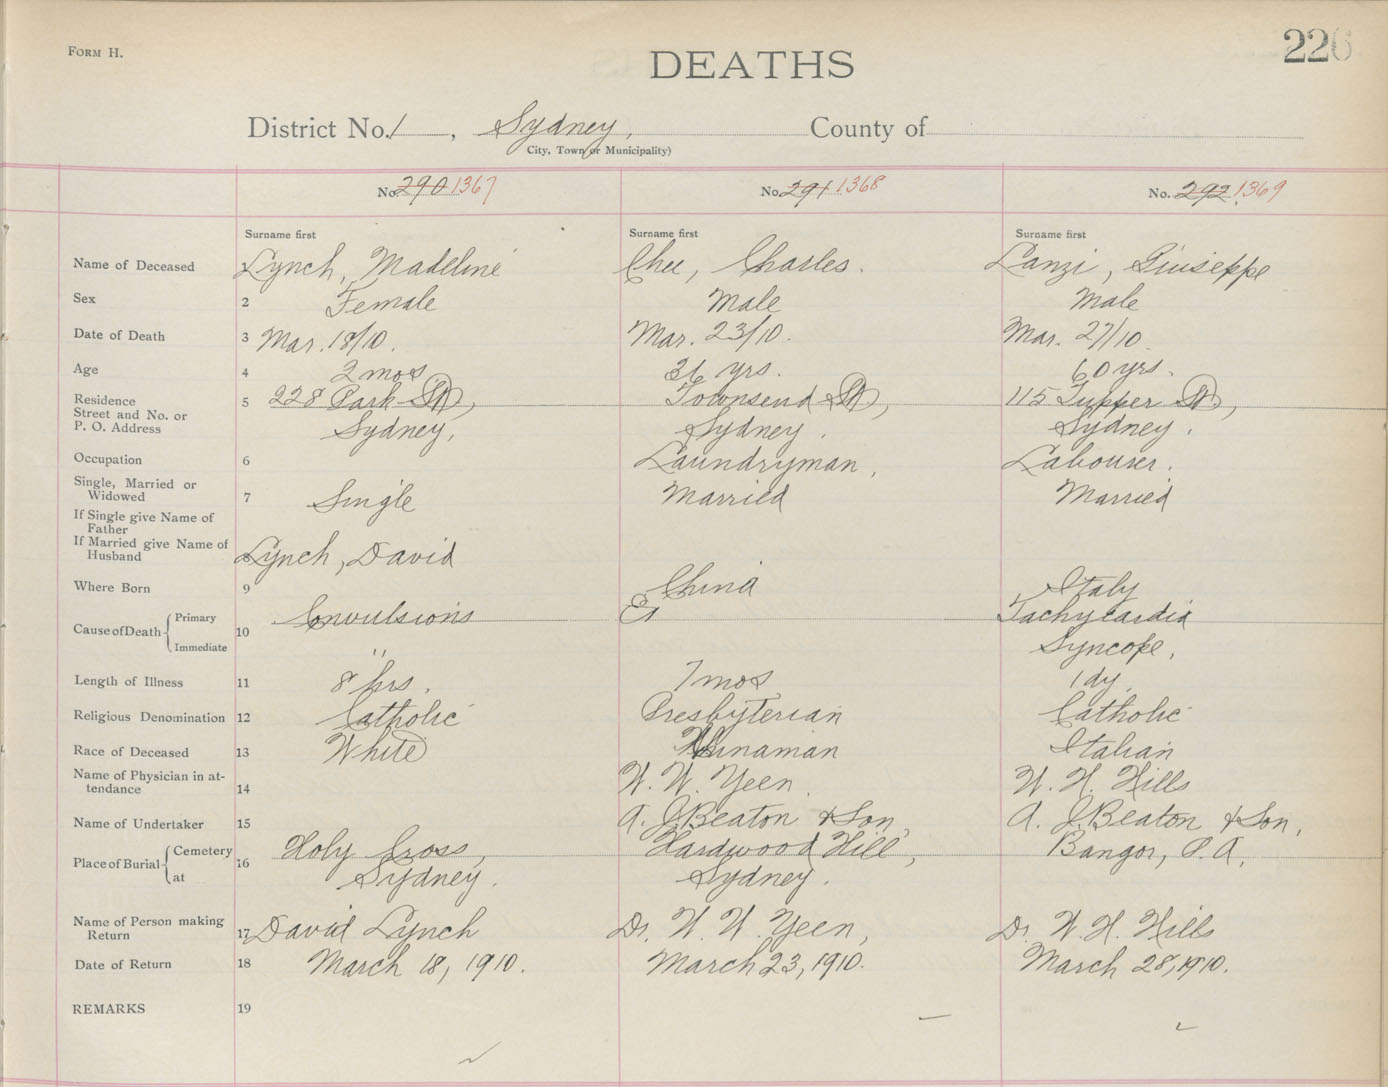 FORM H.
226
DEATHS
District No. 1, Sydney, County of
City, Town or Municipality)
No. 290 1367 No. 291 1368 No. 292 1369
Surname first Surname first Surname first
Name of Deceased 1 Lynch, Madeline Chee, Charles. Lanzi, Giuseppe
Sex 2 Female Male Male
Date of Death 3 Mar. 18/10. Mar. 23/10. Mar. 27/10.
Age 4 2 mos yrs. 60 yrs.
Residence 5 228 Park St, Townsend St, 115 Tupper St,
Street and No. or
P. O. Address Sydney, Sydney. Sydney.
Occupation 6 Laundryman, Labourer.
Single, Married or
Widowed 7 Single Married Married
If Single give Name of
Father
If Married give Name of
Husband 8 Lynch, David
Where Born 9 China Italy
Cause of Death Primary 10 Convulsions Tachycardia
Immediate " Syncope,
Length of Illness 11 8 hrs. 7 mos 1 dy.
Religious Denomination 12 Catholic Presbyterian Catholic
Race of Deceased 13 White Chinaman Italian
Name of Physician in at-
tendance 14 W. W. Yeen. W. H. Hills
Name of Undertaker 15 A. J. Beaton & Son, A. J. Beaton & Son,
Place of Burial Cemetery 16 Holy Cross, Hardwood Hill, Bangor, P. A,
at Sydney. Sydney.
Name of Person making
Return 17 David Lynch Dr. W. W. Yeen, Dr. W. H. Hills
Date of Return 18 March 18, 1910. March 23, 1910. March 28, 1910.
REMARKS 19